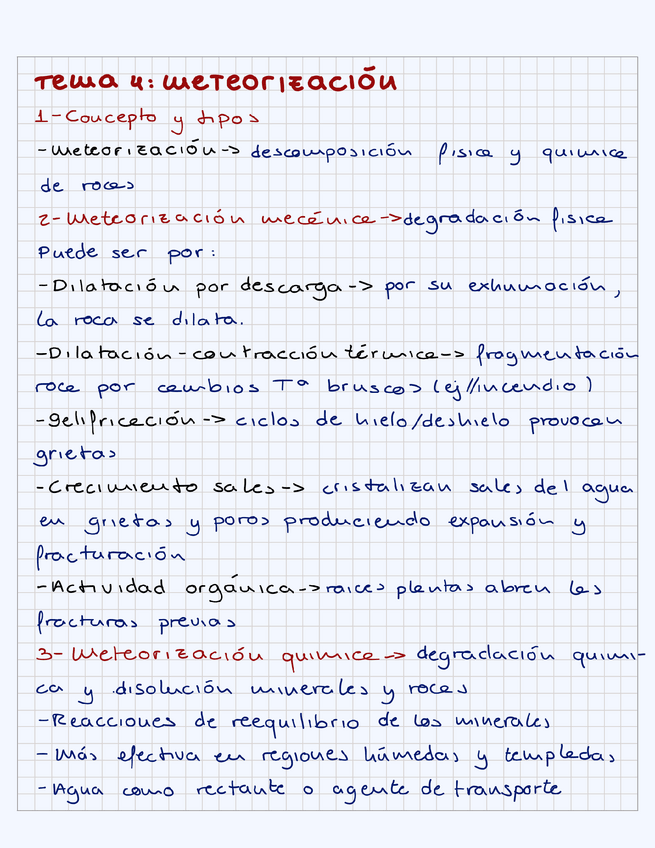 Tema 4: Meteorización
1-Concepto y tipos
-Meteorización-> descomposición física y química
de rocas
2-Meteorización mecánica->degradación física
Puede ser por:
-Dilatación por descarga-> por su exhumación,
la roca se dilata.
-Dilatación-contracción térmica-> fragmentación
roca por cambios Tª bruscos (ej//incendio)
-gelifricación-> ciclos de hielo/deshielo provocan
grietas
-Crecimiento sales-> cristalizan sales del agua
en grietas y poros produciendo expansión y
fracturación
-Actividad orgánica->raíces plantas abren las
fracturas previas
3-Meteorización química-> degradación quími-
ca y disolución minerales y rocas
-Reacciones de reequilibrio de los minerales
-Más efectiva en regiones húmedas y templadas
-Agua como rectante o agente de transporte